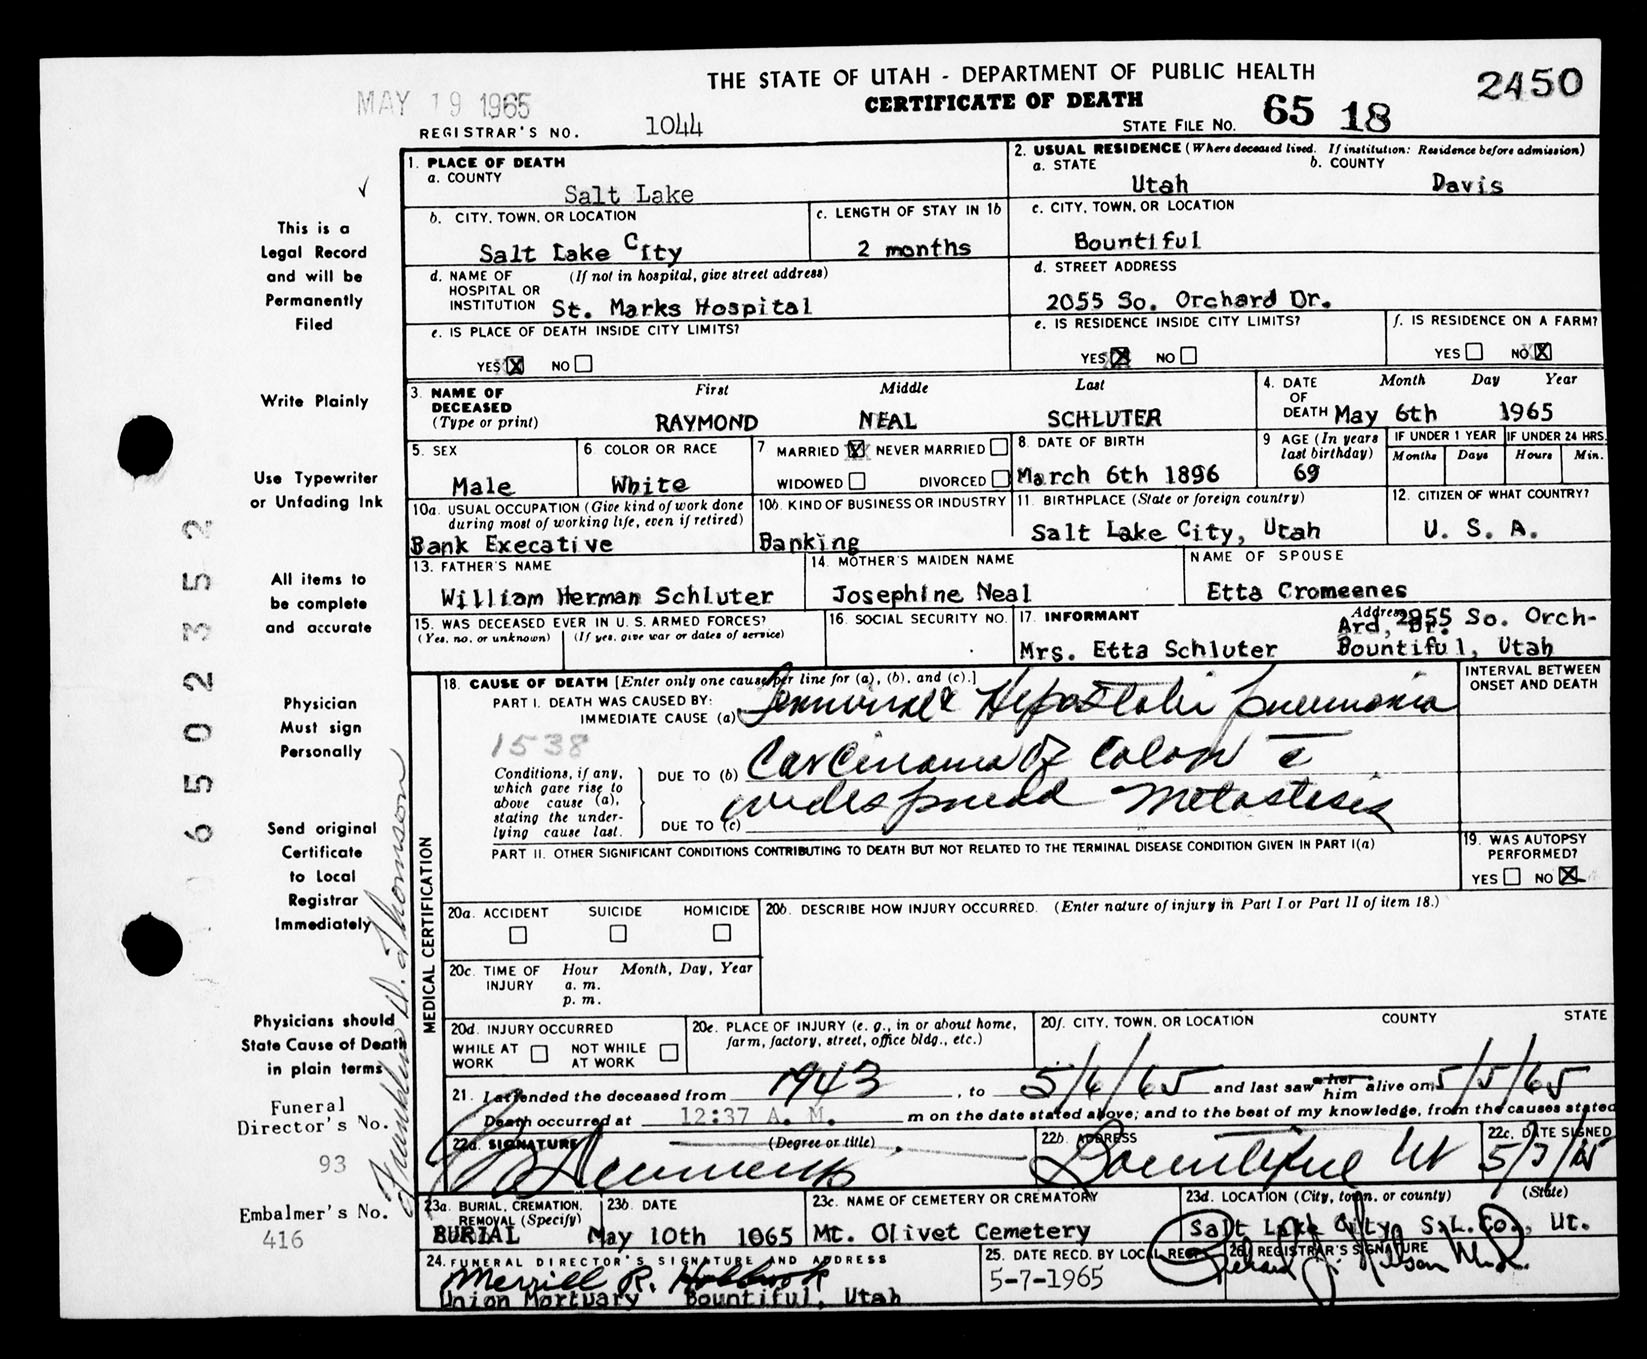 THE STATE OF UTAH - DEPARTMENT OF PUBLIC HEALTH
2450
MAY 19 1965
CERTIFICATE OF DEATH
REGISTRAR'S NO. 1044
STATE FILE No. 65 18
1. PLACE OF DEATH
a. COUNTY
Salt Lake
2. USUAL RESIDENCE (Where deceased lived. If institution: Residence before admission)
a. STATE
b. COUNTY
Utah
Davis
b. CITY, TOWN, OR LOCATION
Salt Lake City
c. LENGTH OF STAY IN 1b
2 months
c. CITY, TOWN, OR LOCATION
Bountiful
d. NAME OF HOSPITAL OR INSTITUTION
(If not in hospital, give street address)
St. Marks Hospital
d. STREET ADDRESS
2055 So. Orchard Dr.
e. IS PLACE OF DEATH INSIDE CITY LIMITS?
YES X NO
e. IS RESIDENCE INSIDE CITY LIMITS?
YES X NO
f. IS RESIDENCE ON A FARM?
YES NO X
3. NAME OF DECEASED
(Type or print)
First Middle Last
RAYMOND NEAL SCHLUTER
4. DATE OF DEATH
Month Day Year
May 6th 1965
5. SEX
Male
6 COLOR OR RACE
White
7 MARRIED X NEVER MARRIED
WIDOWED DIVORCED
8. DATE OF BIRTH
March 6th 1896
9 AGE (In years last birthday)
69
IF UNDER 1 YEAR
Months Days
IF UNDER 24 HRS.
Hours Min.
10a. USUAL OCCUPATION (Give kind of work done during most of working life, even if retired)
Bank Execative
10b. KIND OF BUSINESS OR INDUSTRY
Banking
11. BIRTHPLACE (State or foreign country)
Salt Lake City, Utah
12. CITIZEN OF WHAT COUNTRY?
U. S. A.
13. FATHER'S NAME
William Herman Schluter
14. MOTHER'S MAIDEN NAME
Josephine Neal
NAME OF SPOUSE
Etta Cromeenes
15. WAS DECEASED EVER IN U. S. ARMED FORCES?
(Yes, no, or unknown) (If yes, give war or dates of service)
16. SOCIAL SECURITY NO.
17. INFORMANT
Mrs. Etta Schluter
Address
So. Orch-
Ard, Dr.
Bountiful, Utah
18. CAUSE OF DEATH [Enter only one cause per line for (a), (b), and (c).]
INTERVAL BETWEEN ONSET AND DEATH
PART I. DEATH WAS CAUSED BY:
IMMEDIATE CAUSE (a) pneumonia
1538
Conditions, if any, which gave rise to above cause (a), stating the underlying cause last.
DUE TO (b) Carcinoma of Colon c̄
widespread Metastesis
DUE TO (c)
PART II. OTHER SIGNIFICANT CONDITIONS CONTRIBUTING TO DEATH BUT NOT RELATED TO THE TERMINAL DISEASE CONDITION GIVEN IN PART I(a)
19. WAS AUTOPSY PERFORMED?
YES NO X
MEDICAL CERTIFICATION
20a. ACCIDENT SUICIDE HOMICIDE
20b. DESCRIBE HOW INJURY OCCURRED. (Enter nature of injury in Part I or Part II of item 18.)
20c. TIME OF INJURY
Hour Month, Day, Year
a. m.
p. m.
20d. INJURY OCCURRED
WHILE AT WORK
NOT WHILE AT WORK
20e. PLACE OF INJURY (e. g., in or about home, farm, factory, street, office bldg., etc.)
20f. CITY, TOWN, OR LOCATION COUNTY STATE
21. I attended the deceased from 1943, to 5/6/65 and last saw her him alive on 5/5/65
Death occurred at 12:37 A. M. m on the date stated above; and to the best of my knowledge, from the causes stated
22a. SIGNATURE (Degree or title)
22b. ADDRESS
Bountiful Ut
22c. DATE SIGNED
23a. BURIAL, CREMATION, REMOVAL (Specify)
BURIAL
23b. DATE
May 10th 1065
23c. NAME OF CEMETERY OR CREMATORY
Mt. Olivet Cemetery
23d. LOCATION (City, town, or county) (State)
Salt Lake City, S.L.Co., Ut.
24. FUNERAL DIRECTOR'S SIGNATURE AND ADDRESS
Merrill R. Holbrook
Union Mortuary Bountiful, Utah
25. DATE RECD. BY LOCAL REG.
5-7-1965
26. REGISTRAR'S SIGNATURE
This is a
Legal Record
and will be
Permanently
Filed
Write Plainly
Use Typewriter
or Unfading Ink
All items to
be complete
and accurate
Physician
Must sign
Personally
Send original
Certificate
to Local
Registrar
Immediately
Physicians should
State Cause of Death
in plain terms
Funeral
Director's No.
93
Embalmer's No.
416
Franklin D. Thomson
65023522